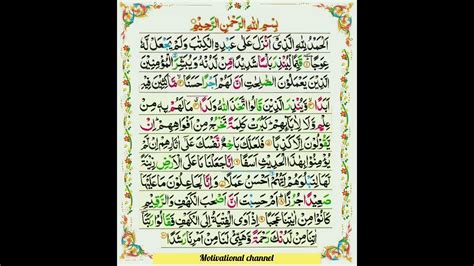 بِسْمِ اللهِ الرَّحْمٰنِ الرَّحِيْمِ
اَلْحَمْدُ لِلّٰهِ الَّذِيْٓ اَنْزَلَ عَلٰى عَبْدِهِ الْكِتٰبَ وَلَمْ يَجْعَلْ لَّهٗ
عِوَجًا قَيِّمًا لِّيُنْذِرَ بَاْسًا شَدِيْدًا مِّنْ لَّدُنْهُ وَيُبَشِّرَ الْمُؤْمِنِيْنَ
الَّذِيْنَ يَعْمَلُوْنَ الصّٰلِحٰتِ اَنَّ لَهُمْ اَجْرًا حَسَنًا مَّاكِثِيْنَ فِيْهِ
اَبَدًا وَّيُنْذِرَ الَّذِيْنَ قَالُوا اتَّخَذَ اللهُ وَلَدًا مَا لَهُمْ بِهٖ مِنْ
عِلْمٍ وَّلَا لِاٰبَآئِهِمْ كَبُرَتْ كَلِمَةً تَخْرُجُ مِنْ اَفْوَاهِهِمْ اِنْ
يَّقُوْلُوْنَ اِلَّا كَذِبًا فَلَعَلَّكَ بَاخِعٌ نَّفْسَكَ عَلٰٓى اٰثَارِهِمْ اِنْ لَّمْ
يُؤْمِنُوْا بِهٰذَا الْحَدِيْثِ اَسَفًا اِنَّا جَعَلْنَا مَا عَلَى الْاَرْضِ زِيْنَةً
لَّهَا لِنَبْلُوَهُمْ اَيُّهُمْ اَحْسَنُ عَمَلًا وَاِنَّا لَجٰعِلُوْنَ مَا عَلَيْهَا
صَعِيْدًا جُرُزًا اَمْ حَسِبْتَ اَنَّ اَصْحٰبَ الْكَهْفِ وَالرَّقِيْمِ
كَانُوْا مِنْ اٰيٰتِنَا عَجَبًا اِذْ اَوَى الْفِتْيَةُ اِلَى الْكَهْفِ فَقَالُوْا رَبَّنَآ
اٰتِنَا مِنْ لَّدُنْكَ رَحْمَةً وَّهَيِّئْ لَنَا مِنْ اَمْرِنَا رَشَدًا
Motivational channel